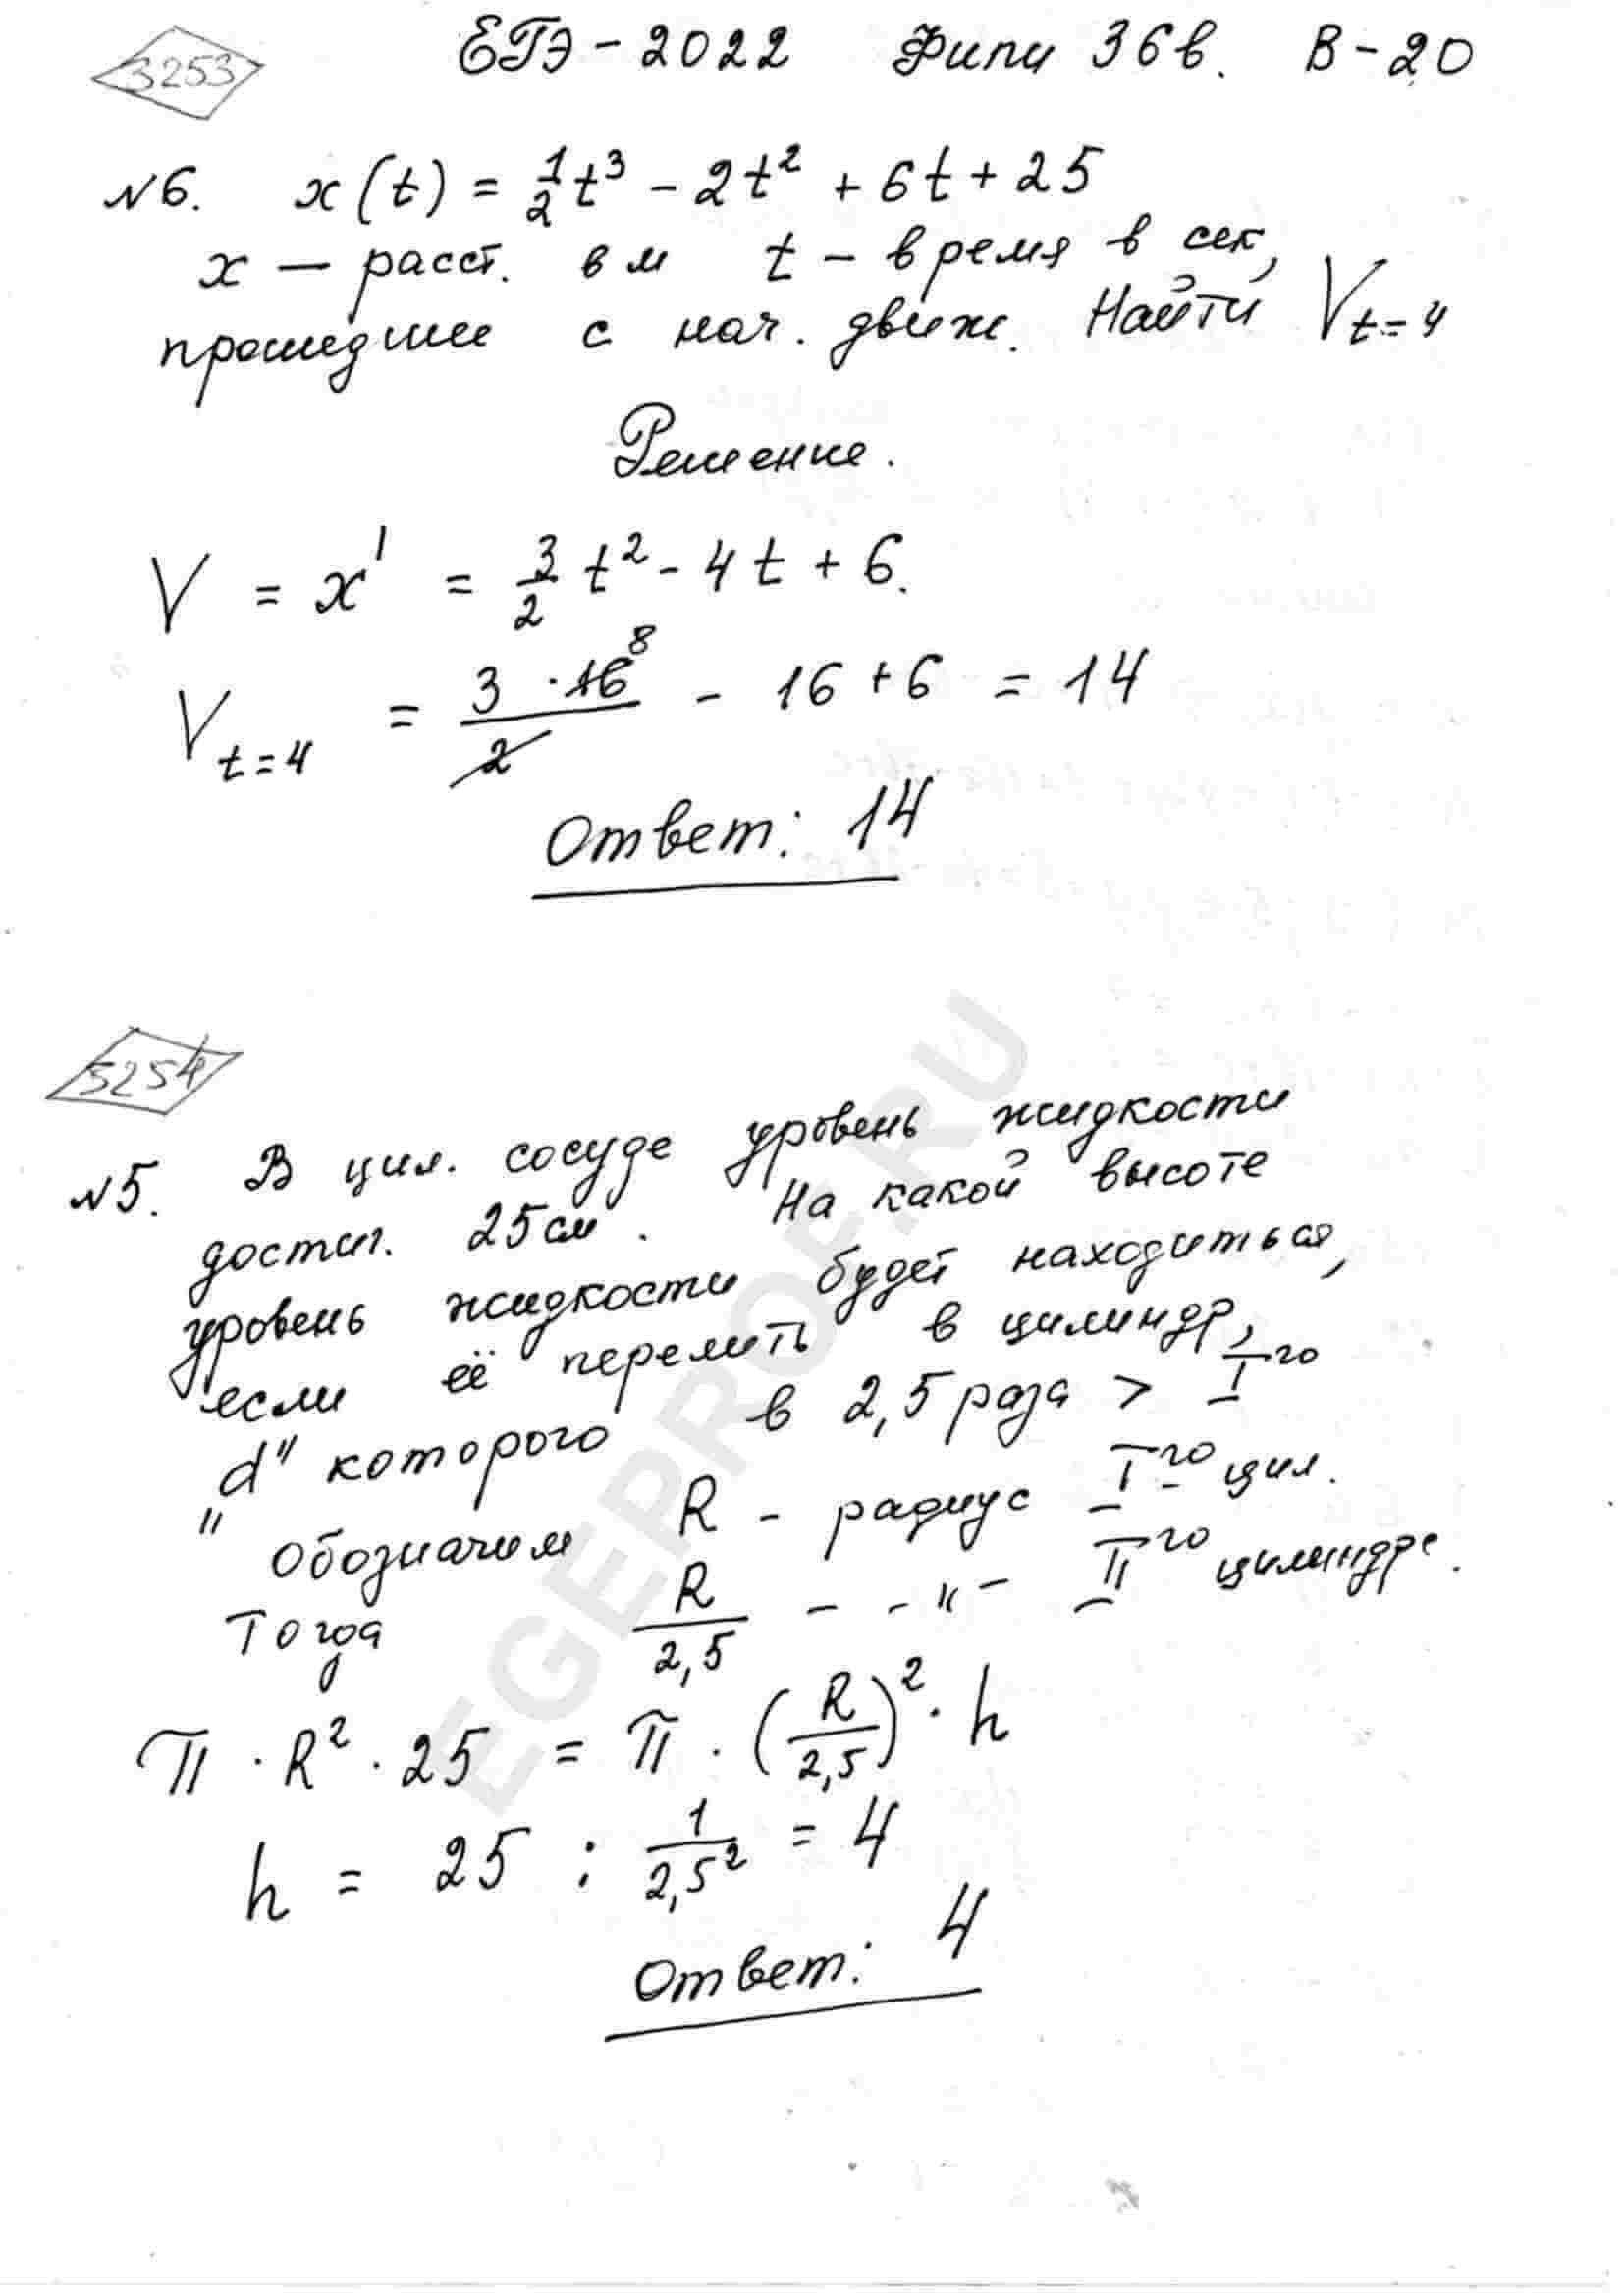 3253
ЕГЭ-2022 Фипи 36в. В-20
№6. x(t) = 1/2 t³ - 2t² + 6t + 25
x — расст. в м t - время в сек,
прошедшее с нач. движ. Найти V t=4
Решение.
V = x' = 3/2 t² - 4t + 6.
V t=4 = 3·16 8 / 2 - 16 + 6 = 14
Ответ: 14
5254
№5. В цил. сосуде уровень жидкости
достиг. 25 см. На какой высоте
уровень жидкости будет находиться,
если её перелить в цилиндр,
"d" которого в 2,5 раза > I го
Обозначим R - радиус I го цил.
Тогда R/2,5 - - " - II го цилиндра.
π · R² · 25 = π · (R/2,5)² · h
h = 25 : 1/2,5² = 4
Ответ: 4
EGEPROF.RU